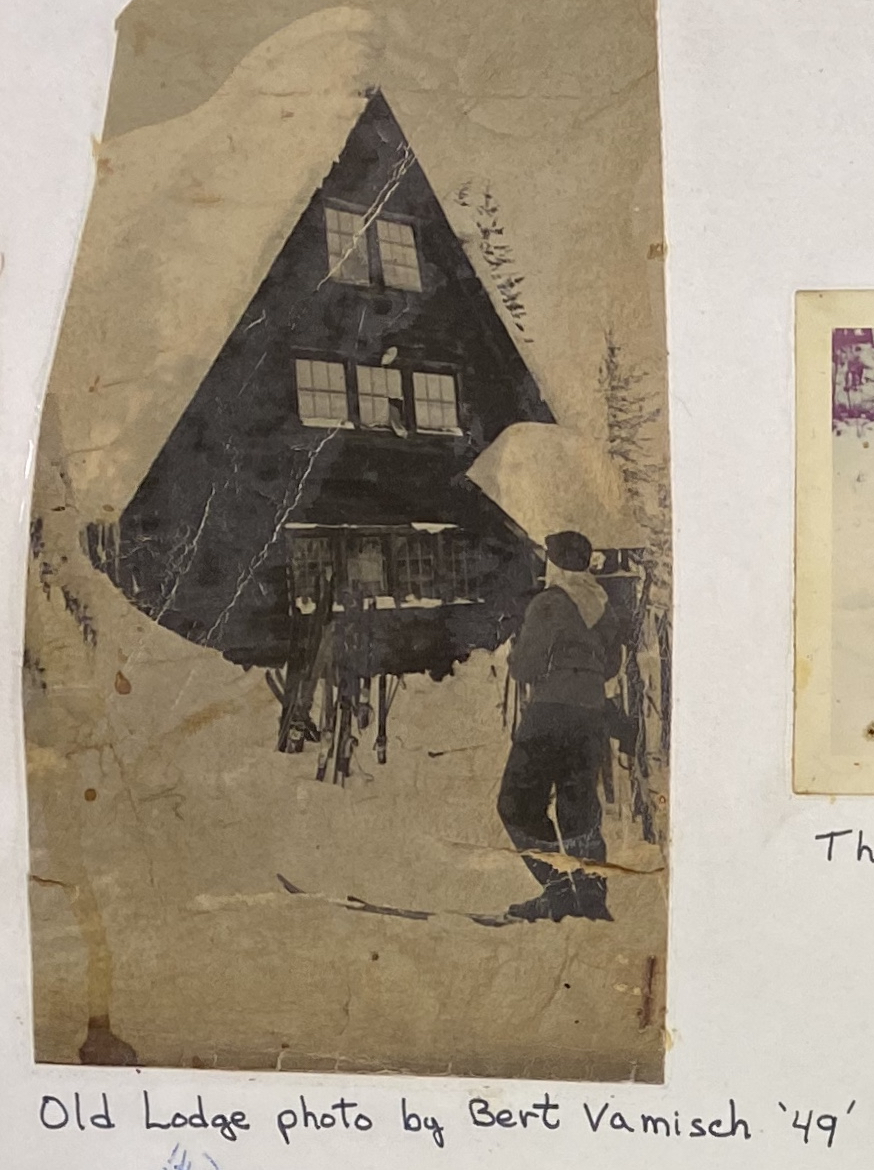 Th
Old Lodge photo by Bert Vamisch '49'